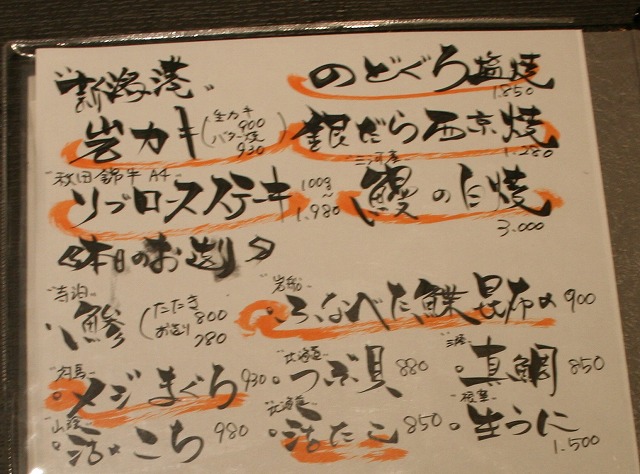 "新潟港" のどぐろ塩焼 1.850
岩カキ (生カキ 900 バター焼 930) 銀だら西京焼 1.280
"秋田錦牛 A4" "三河産"
リブロースステーキ 100g〜 1.980 鰻の白焼 3.000
《本日のお造り》
"寺泊" "岩船"
鯵 (たたき 800 お造り 780) 。ふなべた 昆布〆 900
"対馬" "北海道" "三陸"
。メジまぐろ 930 。つぶ貝 880 。真鯛 850
"山陰" "北海道" "根室"
。活〆こち 980 。活たこ 850 。生うに 1.500